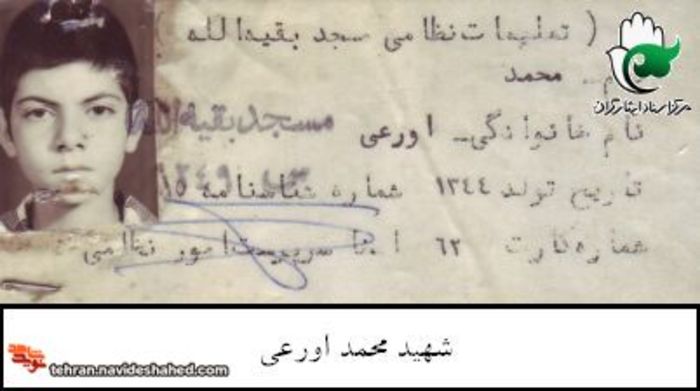 ( تعلیمات نظامی مسجد بقیه‌الله )
نام_ محمد
نام خانوادگی_ اورعی
مسجد بقیه الله
تاریخ تولد ۱۳۴۴ شماره شناسنامه ۱۵
شماره کارت ۶۲ امضا سرپرست امور نظامی
مرکز اسناد ایثارگران
شهید محمد اورعی
نوید شاهد
tehran.navideshahed.com